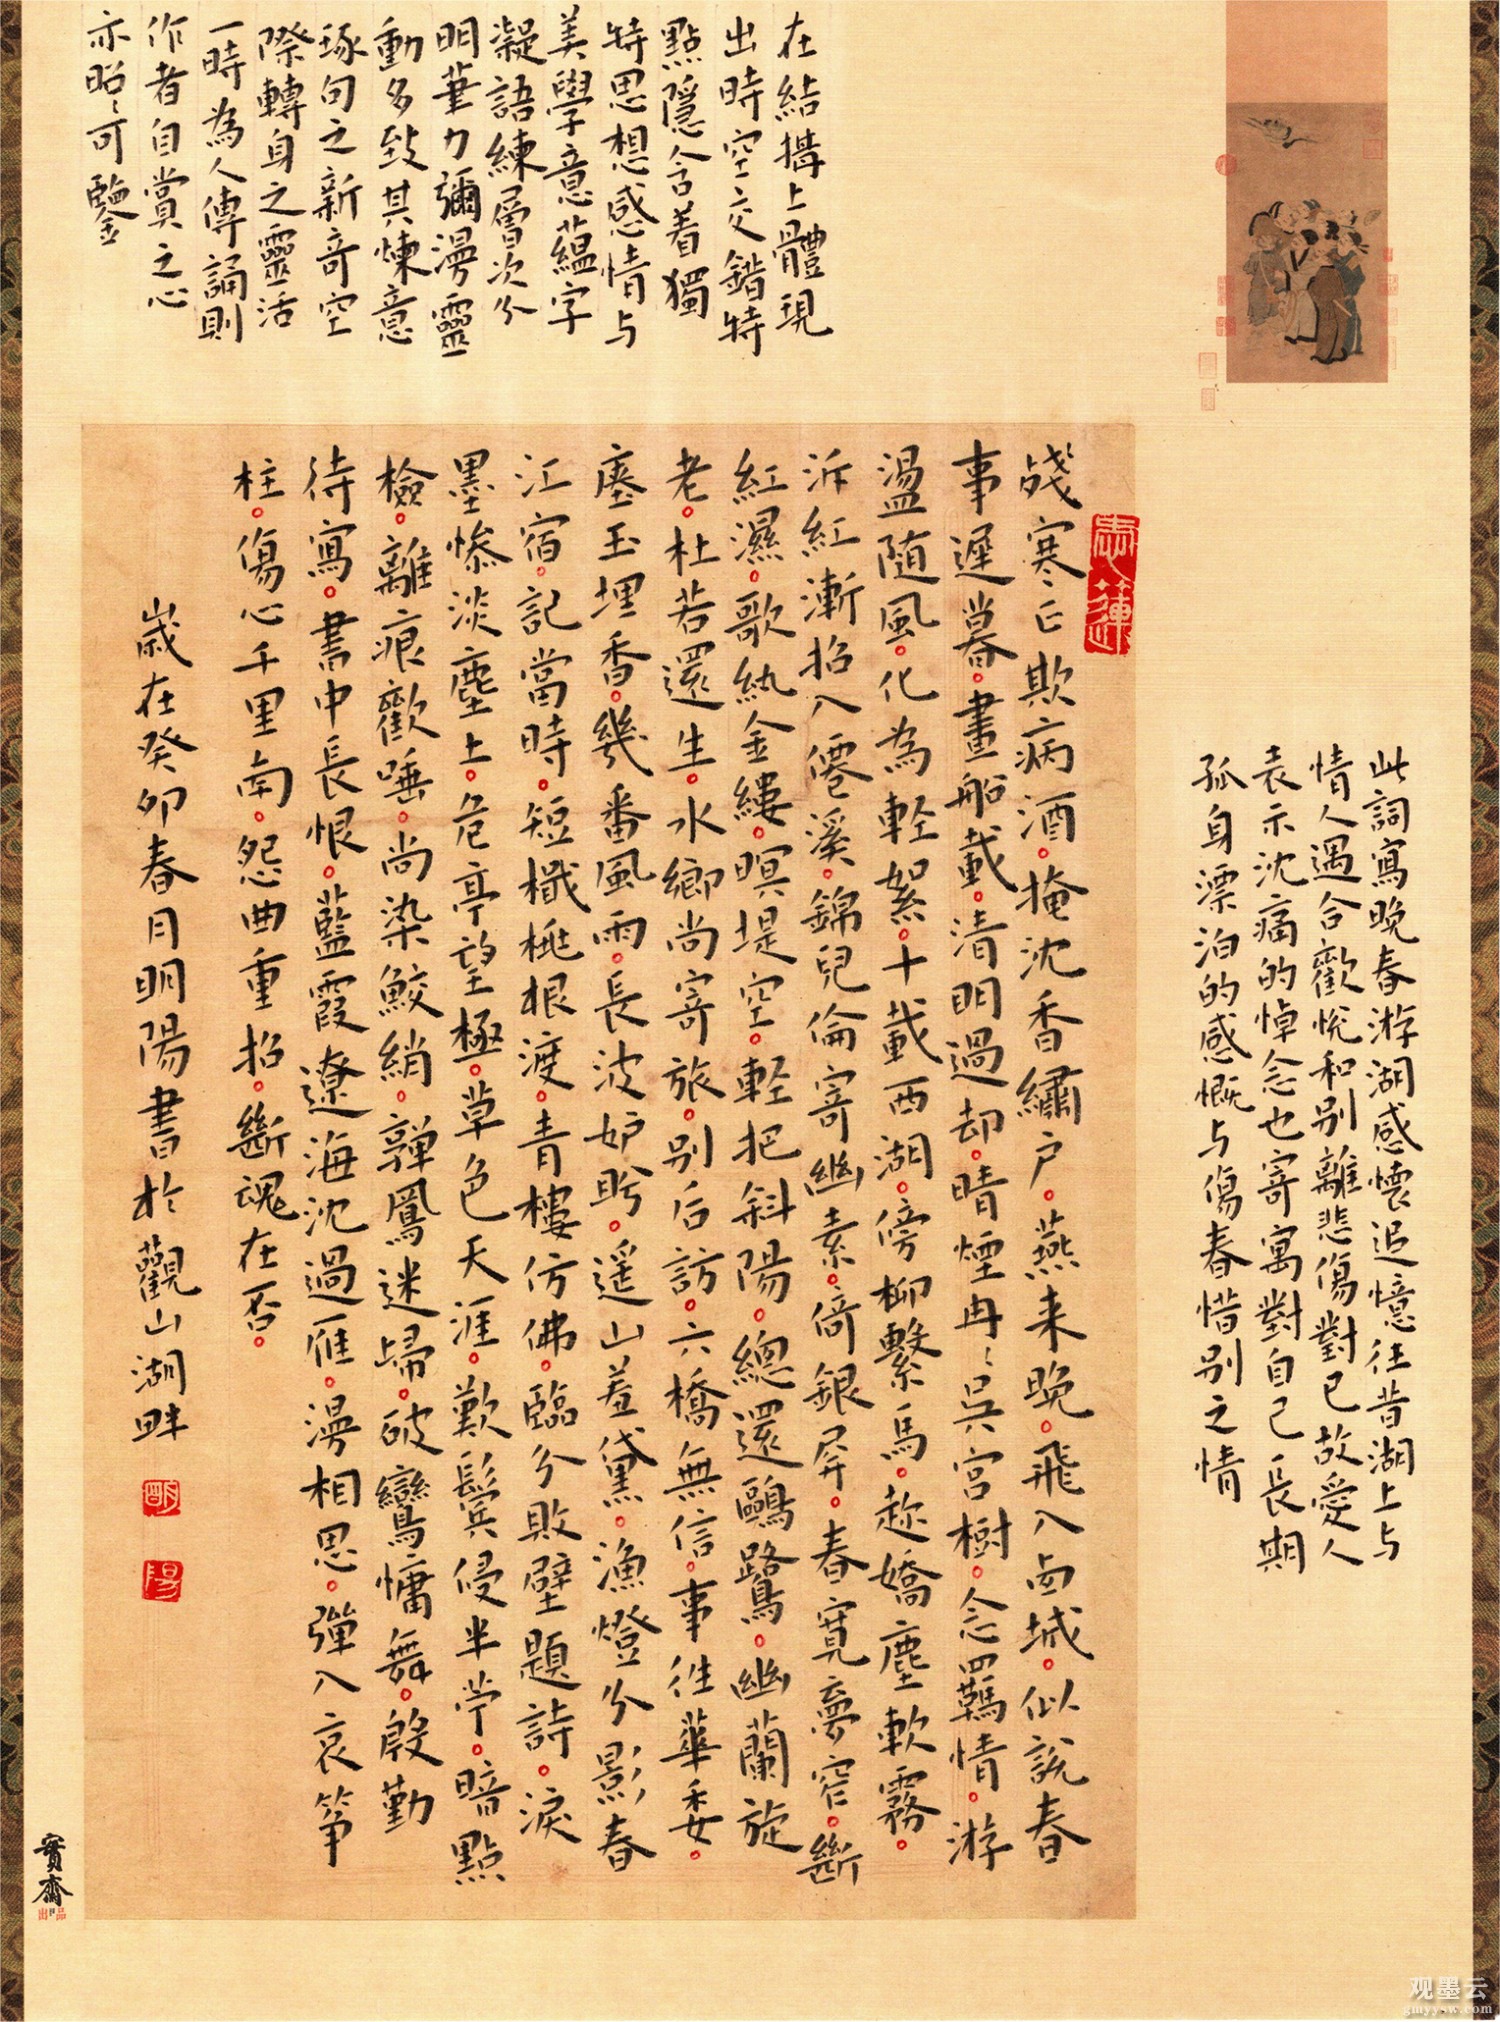 此詞寫晚春游湖感懷追憶往昔湖上与
情人遇合歡悦和别離悲傷對已故愛人
表示沈痛的悼念也寄寓對自己長期
孤身漂泊的感慨与傷春惜别之情
在結構上體現
出時空交錯特
點隱含着獨
特思想感情与
美學意蘊字
凝語練層次分
明筆力彌漫靈
動多致其煉意
琢句之新奇空
際轉身之靈活
一時為人傳誦則
作者自賞之心
亦昭〻可鑒
殘寒〻正欺病酒。掩沈香繡户。燕来晚。飛入西城。似説春
事遲暮。畫船載。清明過却。晴煙冉〻吳宮樹。念羈情。游
盪随風。化為輕絮。十載西湖。傍柳繫馬。趂嬌塵軟霧。
泝紅漸招入僊溪。錦兒偷寄幽素。倚銀屏。春寬夢窄。斷
紅濕。歌紈金縷。暝堤空。輕把斜陽。總還鷗鷺。幽蘭旋
老。杜若還生。水鄉尚寄旅。别后訪。六橋無信。事往華委。
瘞玉埋香。幾番風雨。長波妒盼。遥山羞黛。漁燈分影春
江宿。記當時。短檝桃根渡。青樓仿佛。臨分敗壁題詩。淚
墨慘淡塵上。危亭望極。草色天涯。歎鬢侵半苧。暗點
檢。離痕歡唾。尚染鮫綃。嚲鳳迷歸。破鸞慵舞。殷勤
待寫。書中長恨。藍霞遼海沈過雁。漫相思。彈入哀筝
柱。傷心千里南。怨曲重招。斷魂在否。
歲在癸卯春月明陽書於觀山湖畔
明
陽
寶齋
出品
观墨云
gmyysw.com